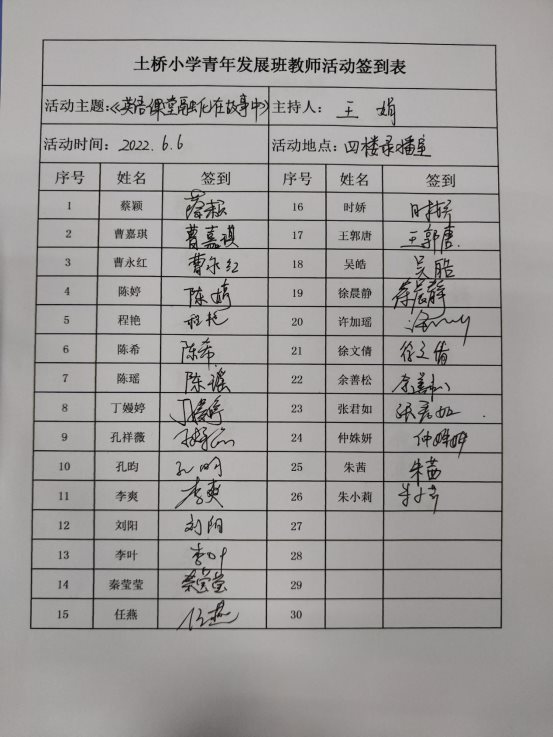 土桥小学青年发展班教师活动签到表
活动主题：《英语课堂融化在故事中》 主持人： 王娟
活动时间： 2022.6.6 活动地点： 四楼录播室
序号 姓名 签到 序号 姓名 签到
1 蔡颖 蔡颖 16 时娇 时娇
2 曹嘉琪 曹嘉琪 17 王郭唐 王郭唐
3 曹永红 曹永红 18 吴皓 吴皓
4 陈婷 陈婷 19 徐晨静 徐晨静
5 程艳 程艳 20 许加瑶
6 陈希 陈希 21 徐文倩 徐文倩
7 陈瑶 陈瑶 22 余善松 余善松
8 丁嫚婷 丁嫚婷 23 张君如 张君如
9 孔祥薇 24 仲姝妍 仲姝妍
10 孔昀 孔昀 25 朱茜 朱茜
11 李爽 李爽 26 朱小莉
12 刘阳 刘阳 27
13 李叶 李叶 28
14 秦莹莹 秦莹莹 29
15 任燕 任燕 30